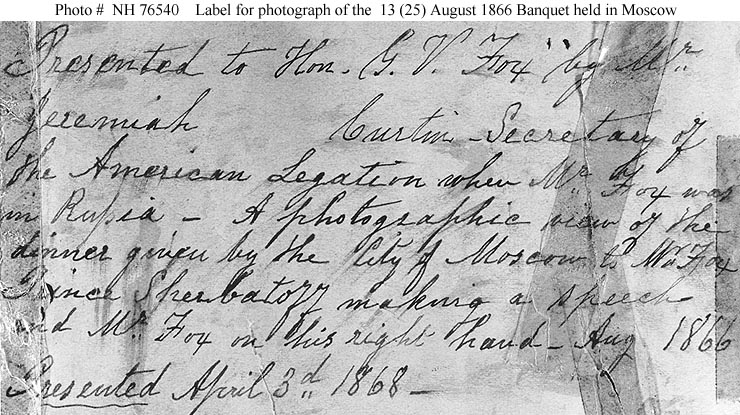 Photo # NH 76540 Label for photograph of the 13 (25) August 1866 Banquet held in Moscow
Presented to Hon. G. V. Fox by Mr.
Jeremiah Curtin Secretary of
the American Legation when Mr. Fox was
in Russia - A photographic view of the
dinner given by the City of Moscow to Mr. Fox
Prince Sherbatoff making a speech
and Mr. Fox on his right hand - Aug 1866
Presented April 3d 1868 -